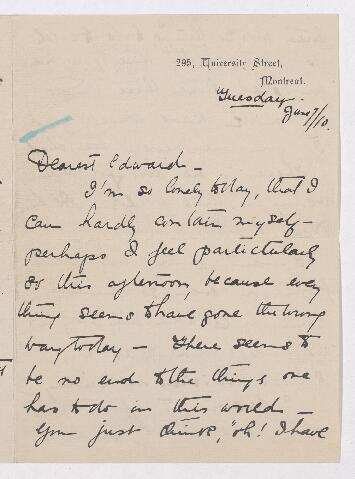 295, University Street,
Montreal.
Tuesday.
June 7/10.
Dearest Edward –
I'm so lonely today, that I
can hardly contain myself –
perhaps I feel particularly
so this afternoon, because every
thing seems to have gone the wrong
way today – There seems to
be no end to the things one
has to do in this world –
You just think, "oh! I have